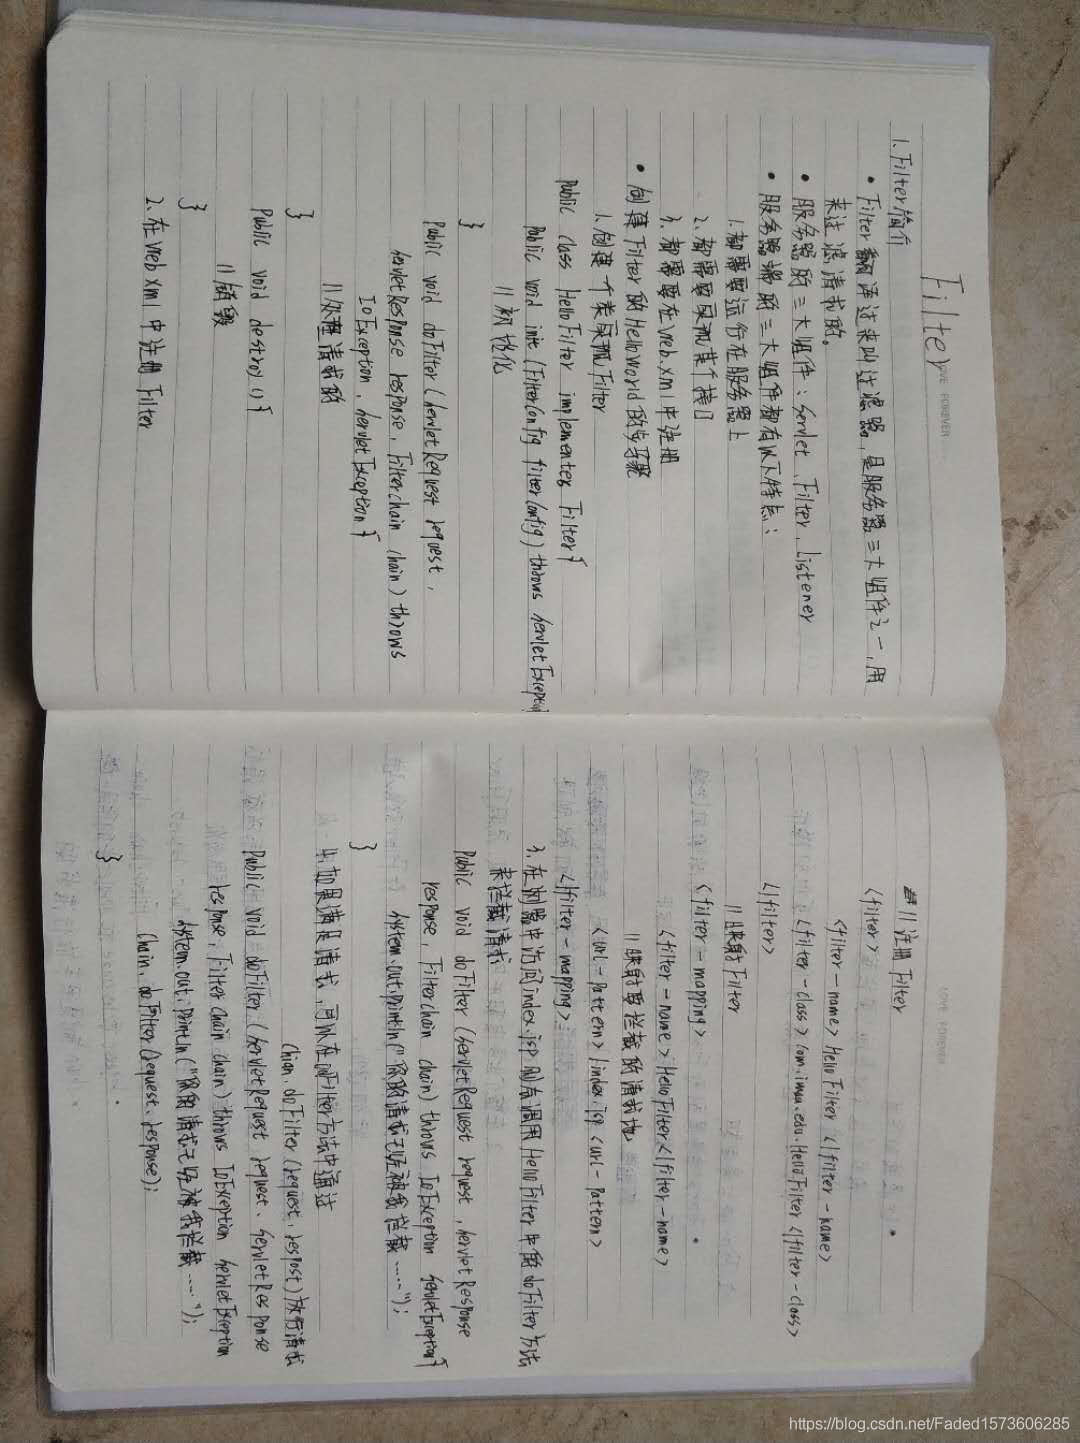 Filter
LOVE FOREVER
1. Filter简介
• Filter翻译过来叫过滤器,是服务器三大组件之一,用
来过滤请求的。
• 服务器的三大组件:Servlet、Filter、Listener
• 服务器端的三大组件都有以下特点:
1.都需要运行在服务器上
2.都需要实现某个接口
3.都需要在web.xml中注册
• 创建Filter的HelloWorld的步骤
1.创建一个类实现Filter
Public class HelloFilter implementes Filter{
Public void init(FilterConfig filterConfig) throws ServletException{
//初始化
}
Public void doFilter(ServletRequest request,
ServletResponse response, Filterchain chain) throws
IoException, ServletException{
//处理请求的
}
Public void destroy(){
//销毁
}
2.在web.xml中注册Filter
LOVE FOREVER
//注册Filter
<filter>
<filter-name>HelloFilter</filter-name>
<filter-class>com.imau.edu.HelloFilter</filter-class>
</filter>
//映射Filter
<filter-mapping>
<filter-name>HelloFilter</filter-name>
//映射要拦截的请求地
<url-pattern>/index.jsp<url-pattern>
</filter-mapping>
3.在浏览器中访问index.jsp则去调用HelloFilter中的doFilter方法
来拦截请求
Public void doFilter(ServletRequest request, ServletResponse
response, Filterchain chain) throws IoException ServletException{
System.out.println("你的请求已经被我拦截......");
}
4.如果满足请求,可以在doFilter方法中通过
Chian.doFilter(request,respost)放行请求
Public void doFilter(ServletRequest request, ServletResponse
response, Filterchain chain) throws IoException ServletException
System.out.println("你的请求已经被我拦截......");
Chain.doFilter(request,response);
}
https://blog.csdn.net/Faded1573606285